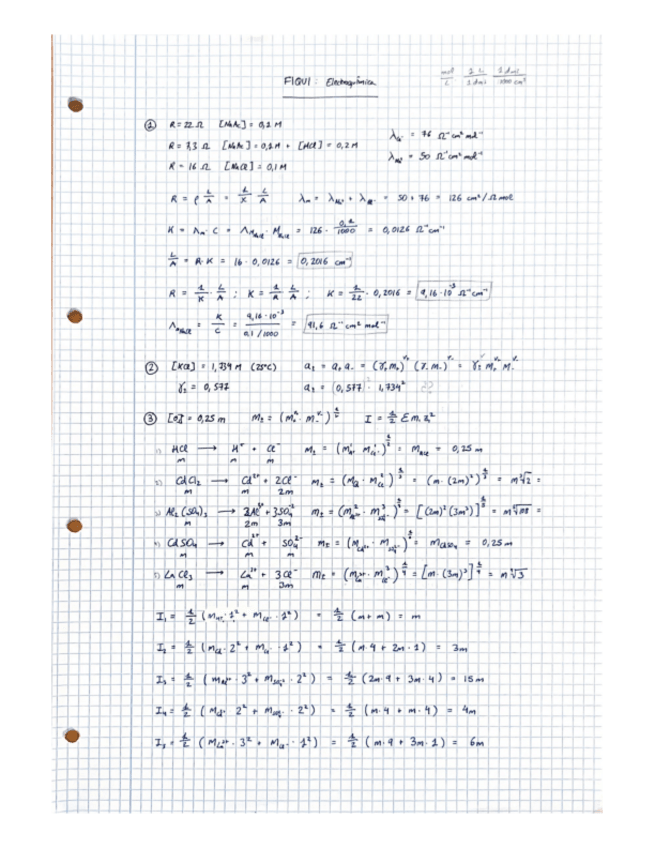 FIQUI : Electroquímica
mol/L 1 L/1 dm³ 1 dm³/1000 cm³
① R = 22 Ω [NaAc] = 0,1 M
R = 7,3 Ω [NaAc] = 0,1 M + [NaCl] = 0,2 M
R = 16 Ω [NaCl] = 0,1 M
λCl⁻ = 76 Ω⁻¹ cm² mol⁻¹
λNa⁺ = 50 Ω⁻¹ cm² mol⁻¹
R = ρ L/A = 1/K L/A λm = λNa⁺ + λCl⁻ = 50 + 76 = 126 cm²/Ω mol
K = Λm · C = ΛmNaCl · MNaCl = 126 · 0,1/1000 = 0,0126 Ω⁻¹ cm⁻¹
L/A = R · K = 16 · 0,0126 = 0,2016 cm⁻¹
R = 1/K · L/A ; K = 1/R · L/A ; K = 1/22 · 0,2016 = 9,16·10⁻³ Ω⁻¹ cm⁻¹
= K/C = 9,16·10⁻³/0,1/1000 = 91,6 Ω⁻¹ cm² mol⁻¹
② [KCl] = 1,734 m (25ºC) a± = a₊ a₋ = (γ₊ m₊)^ν₊ (γ₋ m₋)^ν₋ = γ± m₊^ν₊ m₋^ν₋
γ± = 0,577 a± = (0,577)² · 1,734² ??
③ = 0,25 m m± = (m₊^ν₊ · m₋^ν₋)^1/ν I = 1/2 Σ mᵢ zᵢ²
1) HCl → H⁺ + Cl⁻ m± = (m¹H⁺ m¹Cl⁻)^1/2 = mHCl = 0,25 m
m m m
2) CdCl₂ → Cd²⁺ + 2Cl⁻ m± = (mCd · m²Cl⁻)^1/3 = (m · (2m)²)^1/3 = m∛2 =
m m 2m
3) Al₂(SO₄)₃ → 2Al³⁺ + 3SO₄²⁻ m± = (m²Al³⁺ · m³SO₄²⁻)^1/5 = [(2m)² (3m³)]^1/5 = m⁵√108 =
m 2m 3m
4) CdSO₄ → Cd²⁺ + SO₄²⁻ m± = (mCd²⁺ · mSO₄²⁻)^1/2 = mCdSO₄ = 0,25 m
m m m
5) LaCl₃ → La³⁺ + 3Cl⁻ m± = (mLa³⁺ · m³Cl⁻)^1/4 = [m · (3m)³]^1/4 = m⁴√3
m m 3m
I₁ = 1/2 (mH⁺ · 1² + mCl⁻ · 1²) = 1/2 (m + m) = m
I₂ = 1/2 (mCd · 2² + mCl⁻ · 1²) = 1/2 (m · 4 + 2m · 1) = 3m
I₃ = 1/2 (mAl³⁺ · 3² + mSO₄²⁻ · 2²) = 1/2 (2m · 9 + 3m · 4) = 15m
I₄ = 1/2 (mCd · 2² + mSO₄ · 2²) = 1/2 (m · 4 + m · 4) = 4m
I₅ = 1/2 (mLa³⁺ · 3² + mCl⁻ · 1²) = 1/2 (m · 9 + 3m · 1) = 6m